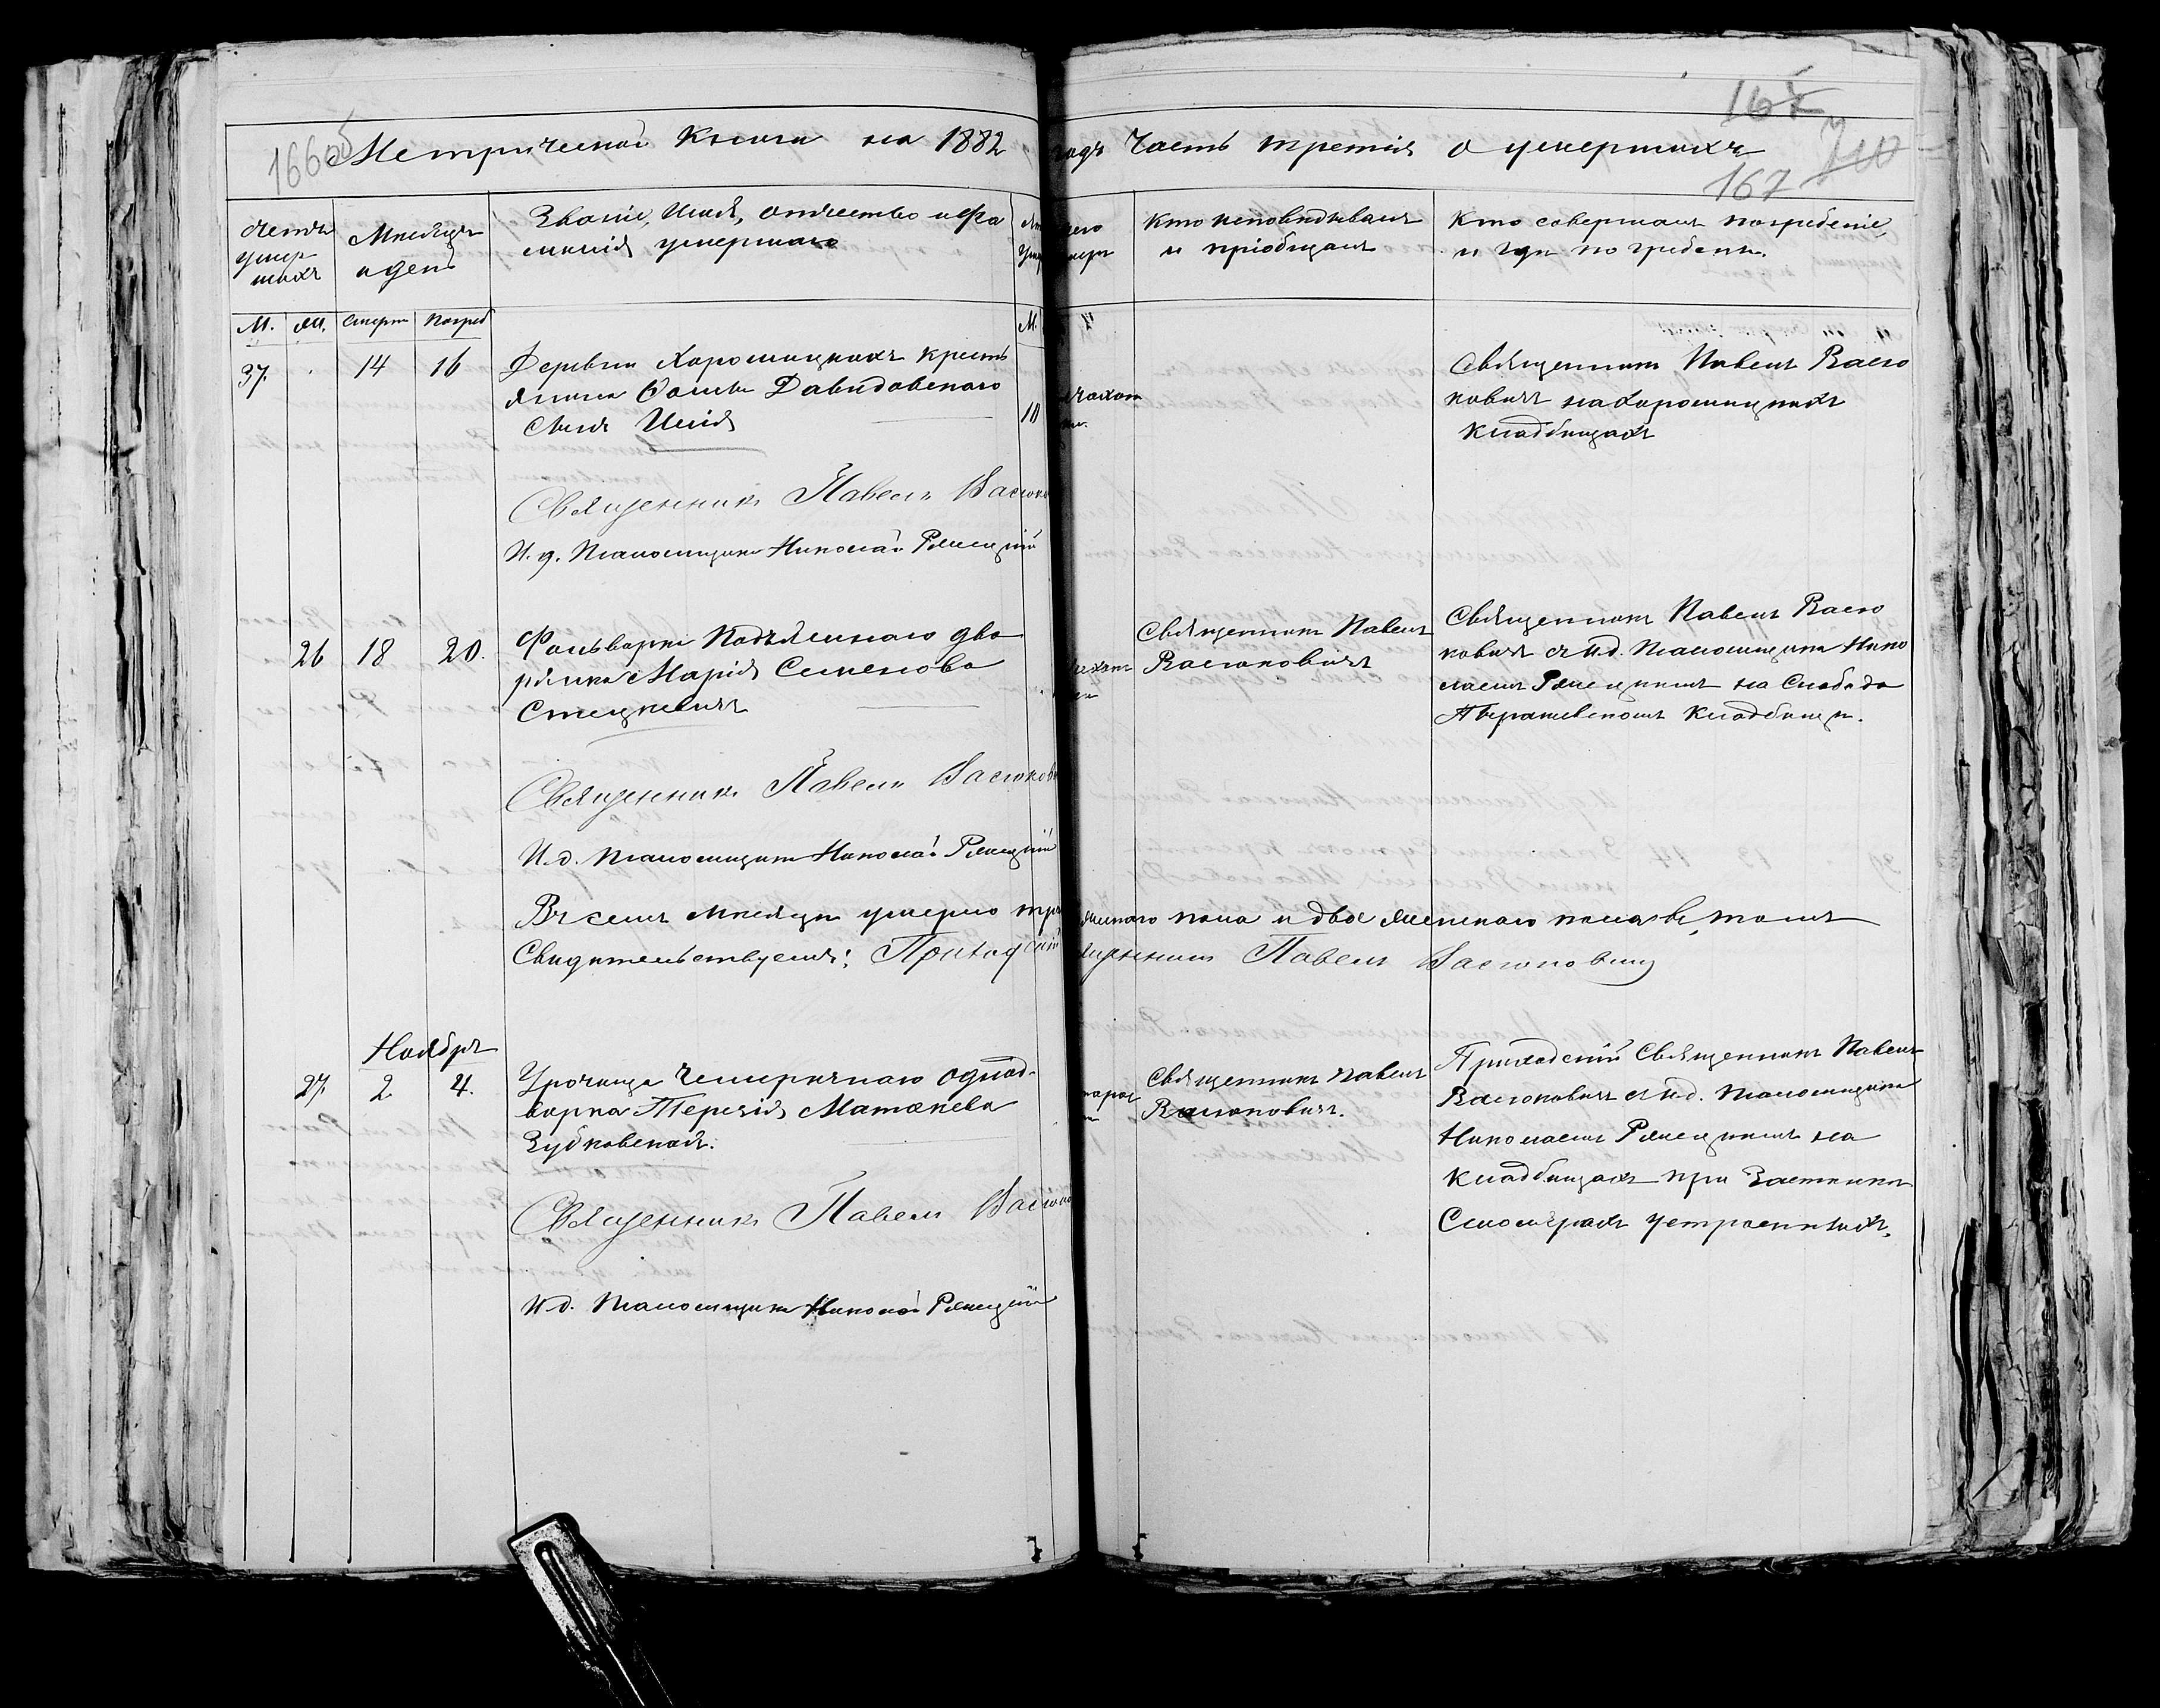 166об
Метрической Книги на 1882
годъ Часть третія о умершихъ
167
167
Счетъ умер шихъ
Мѣсяцъ и день
Званіе, Имя, отчество и фа
милія умершаго
Кто исповѣдывалъ
и пріобщалъ
Кто совершалъ погребеніе,
и гдѣ погребенъ.
М. Ж. Смерти Погреб
М.
37. 14 16
Деревни Хорошицкихъ кресть
янина Ѳомы Давидовскаго
сынъ Илія
10
Священникъ Павелъ Васю
ковичъ на Хорошицкихъ
кладбищахъ
Священникъ Павелъ Васюко
И. д. Псаломщика Николай Ржецкій
26 18 20.
Фольварка Подъямнаго дво
рянка Марія Семенова
Стецкевичъ
Священникъ Павелъ
Васюковичъ
Священникъ Павелъ Васю
ковичъ съ И.д. Псаломщика Нико
лаемъ Ржецкимъ на Слободо
кладбищѣ.
Священникъ Павелъ Васюкови
И.д. Псаломщика Николай Ржецкій
Въ семъ мѣсяцѣ умерло
пола и двое женскаго пола въ томъ
Свидѣтельствуемъ: Приходскій
Павелъ Васюковичъ
Ноябрь
27. 2 4.
Урочища однод-
ворка Терезія
Зубковская.
Священникъ Павелъ
Васюковичъ.
Приходскій Священникъ Павелъ
Васюковичъ съ И.д. Псаломщика
Николаемъ Ржецкимъ на
Кладбищахъ при Застѣнкѣ
устроенныхъ.
Священникъ Павелъ Васюко
И.д. Псаломщика Николай Ржецкій